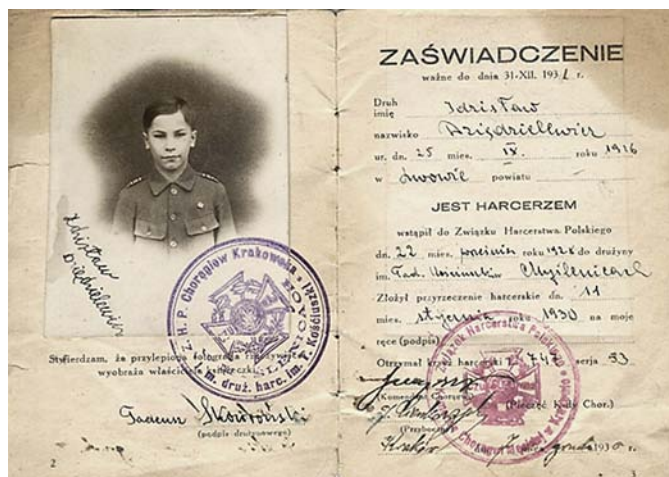 Zdzisław
Dzię­dzielewicz
Z. H. P. Chorągiew Krakowska
druż. harc. im. T. Kościuszki
Stwierdzam, że przylepiona fotografja rzeczywiście
wyobraża właściciela książeczki
Tadeusz Skowroński
(podpis drużynowego)
2
ZAŚWIADCZENIE
ważne do dnia 31-XII. 1931 r.
Druh
imię Zdzisław
nazwisko
ur. dn. 25 mies. IX. roku 1916
w Lwowie powiatu
JEST HARCERZEM
wstąpił do Związku Harcerstwa Polskiego
dn. 22 mies. września roku 1928 do drużyny
im. Tad. Kościuszki w
Złożył przyrzeczenie harcerskie dn. 11
mies. stycznia roku 1930 na moje
ręce (podpis)
Otrzymał krzyż harcerski L. 747 serja 33
(Komendant Chorągwi)
(Pieczęć K-dy Chor.)
(Przyboczny)
Kraków grudnia 1930 r.
Związek Harcerstwa Polskiego
3